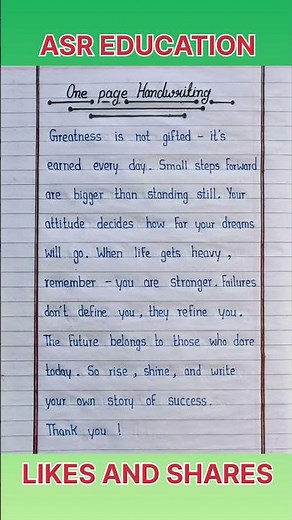 ASR EDUCATION
One page Handwriting
Greatness is not gifted - it's
earned every day. Small steps forward
are bigger than standing still. Your
attitude decides how far your dreams
will go. When life gets heavy,
remember - you are stronger. Failures
don't define you, they refine you.
The future belongs to those who dare
today. So rise, shine, and write
your own story of success.
Thank you !
LIKES AND SHARES